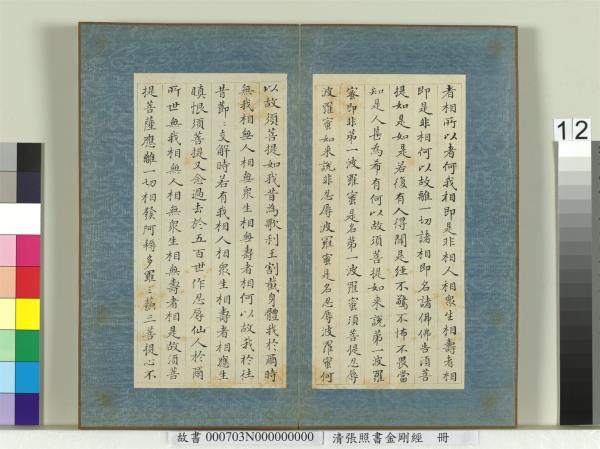 者相所以者何我相即是非相人相衆生相壽者相
即是非相何以故離一切諸相即名諸佛佛告須菩
提如是如是若復有人得聞是經不驚不怖不畏當
知是人甚為希有何以故須菩提如来說第一波羅
蜜即非第一波羅蜜是名第一波羅蜜須菩提忍辱
波羅蜜如来說非忍辱波羅蜜是名忍辱波羅蜜何
以故須菩提如我昔為歌利王割截身體我於爾時
無我相無人相無衆生相無壽者相何以故我於往
昔節〻支解時若有我相人相衆生相壽者相應生
瞋恨須菩提又念過去於五百世作忍辱仙人於爾
所世無我相無人相無衆生相無壽者相是故須菩
提菩薩應離一切相發阿耨多羅三藐三菩提心不
12
故書 000703N000000000 清張照書金剛經 冊